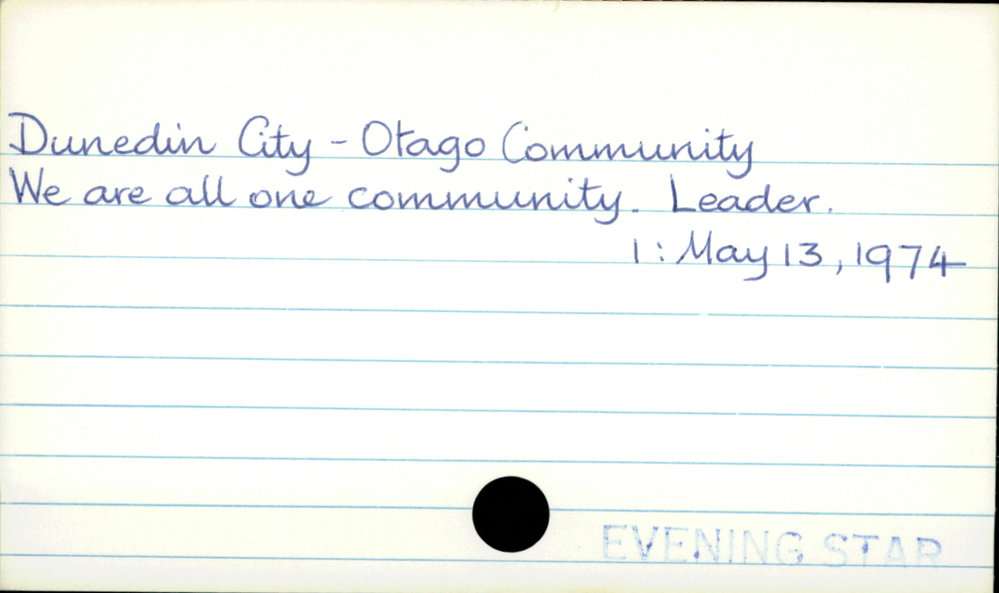 Dunedin City - Otago Community
We are all one community. Leader.
1: May 13, 1974
EVENING STAR